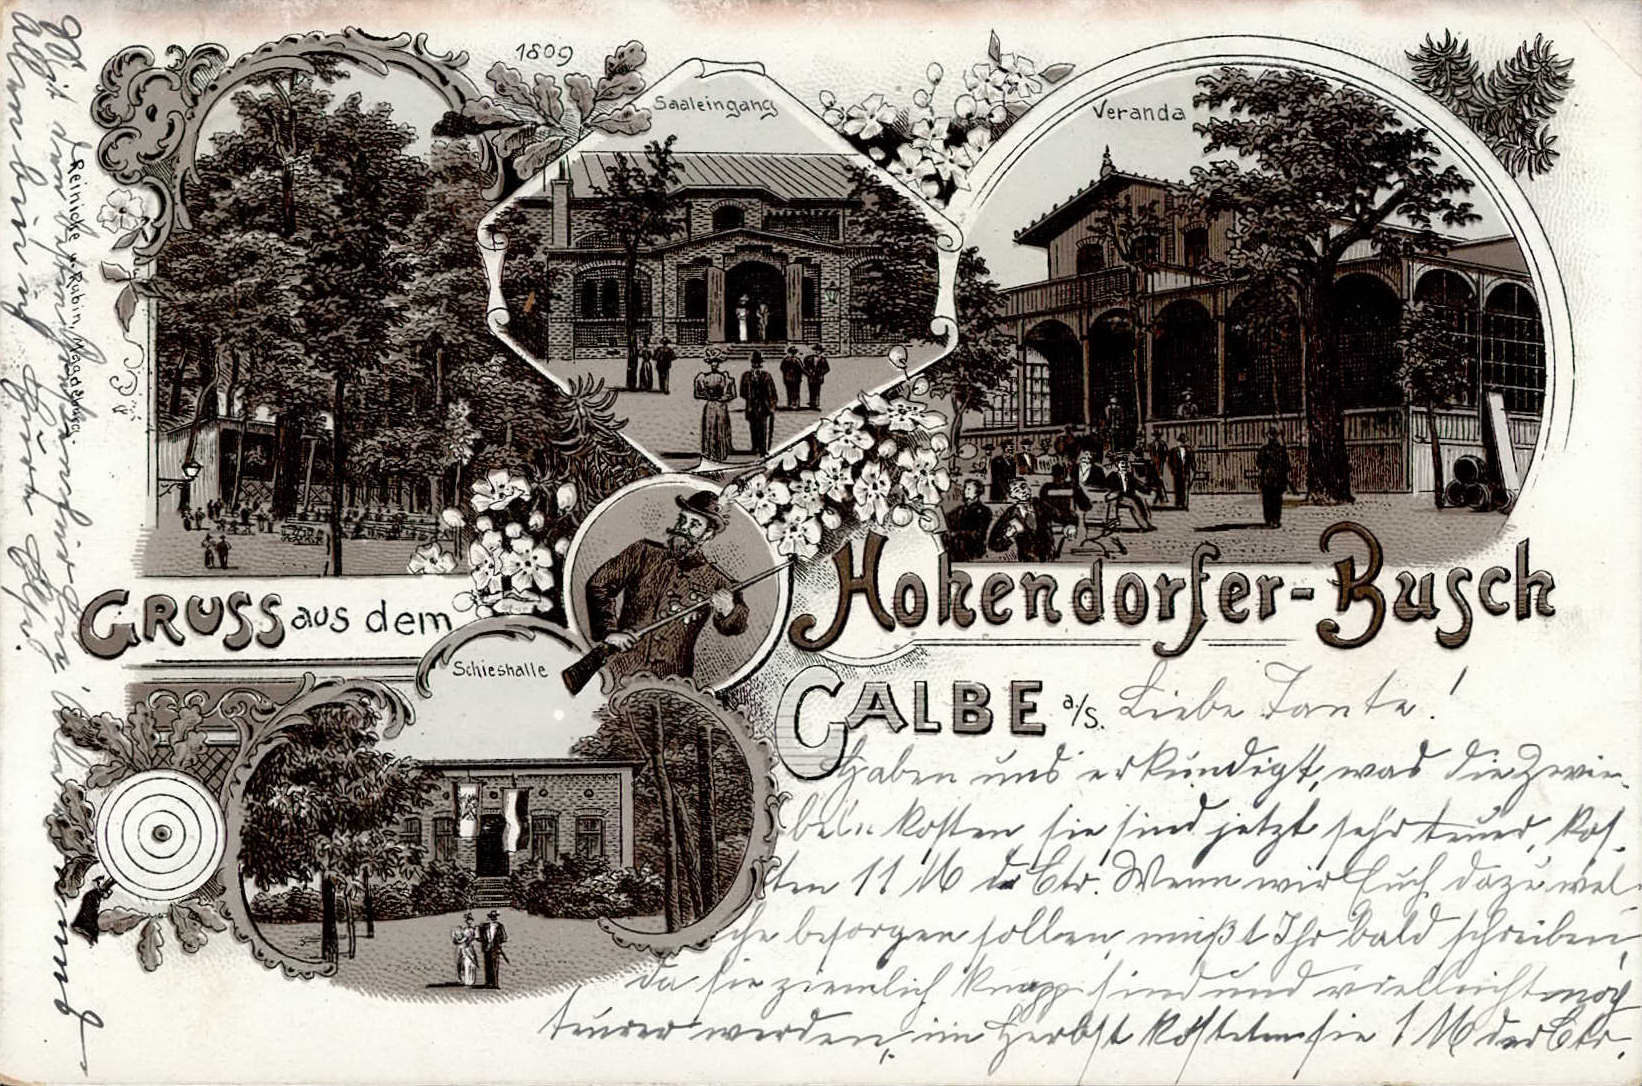 1809
Saaleingang
Veranda
Reinicke u. Rubin, Magdeburg.
GRUSS aus dem
Hohendorfer-Busch
Schieshalle
CALBE a/S.
Liebe Tante!
Haben uns erkundigt, was die Zwie-
beln kosten sie sind jetzt sehr teuer, kos-
ten 11 M d Ctr. Wenn wir Euch dazu wel-
che besorgen sollen, müßt Ihr bald schreiben,
da sie ziemlich knapp sind und vielleicht noch
teurer werden, im Herbst kosteten sie 1 M der Ctr.
Mit den